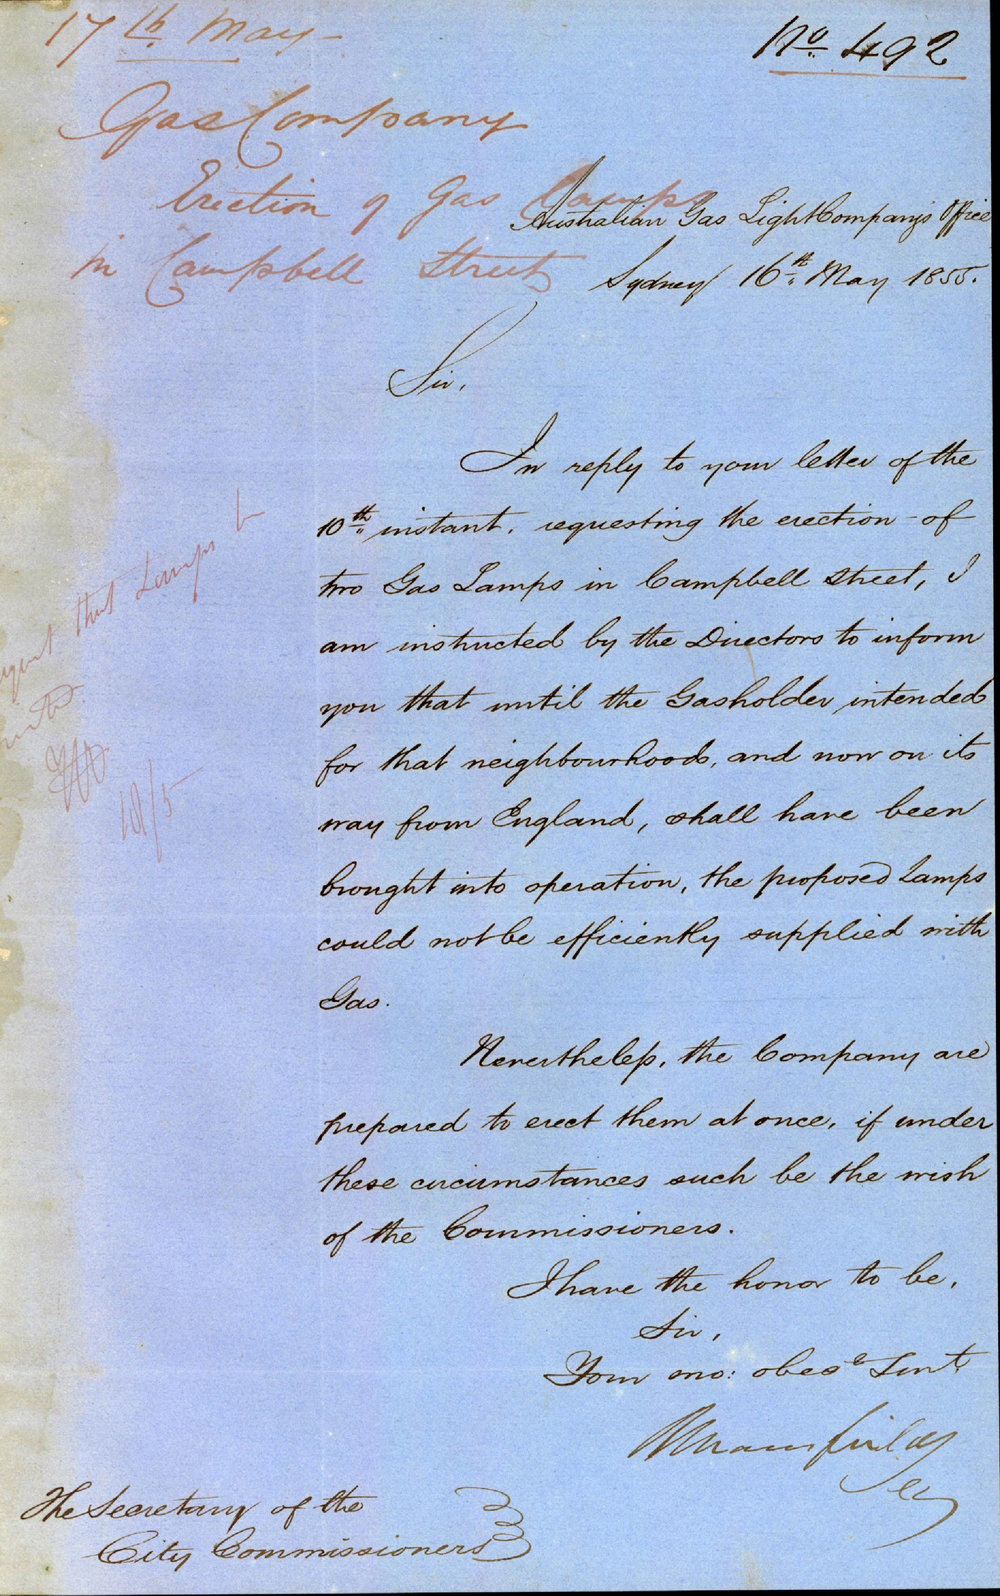 17th May -
No 492
Gas Company
Erection of Gas Lamps
in Campbell Street
Australian Gas Light Company's Office
Sydney 16th May 1855.
Sir,
In reply to your letter of the
10th instant, requesting the erection of
two Gas Lamps in Campbell Street, I
am instructed by the Directors to inform
you that until the Gasholder intended
for that neighbourhood, and now on its
way from England, shall have been
brought into operation, the proposed Lamps
could not be efficiently supplied with
Gas.
Nevertheless, the Company are
prepared to erect them at once, if under
these circumstances such be the wish
of the Commissioners.
I have the honor to be,
Sir,
Your mo: obed Servt
Mansfield
Sey
The Secretary of the
City Commissioners
that Lamps